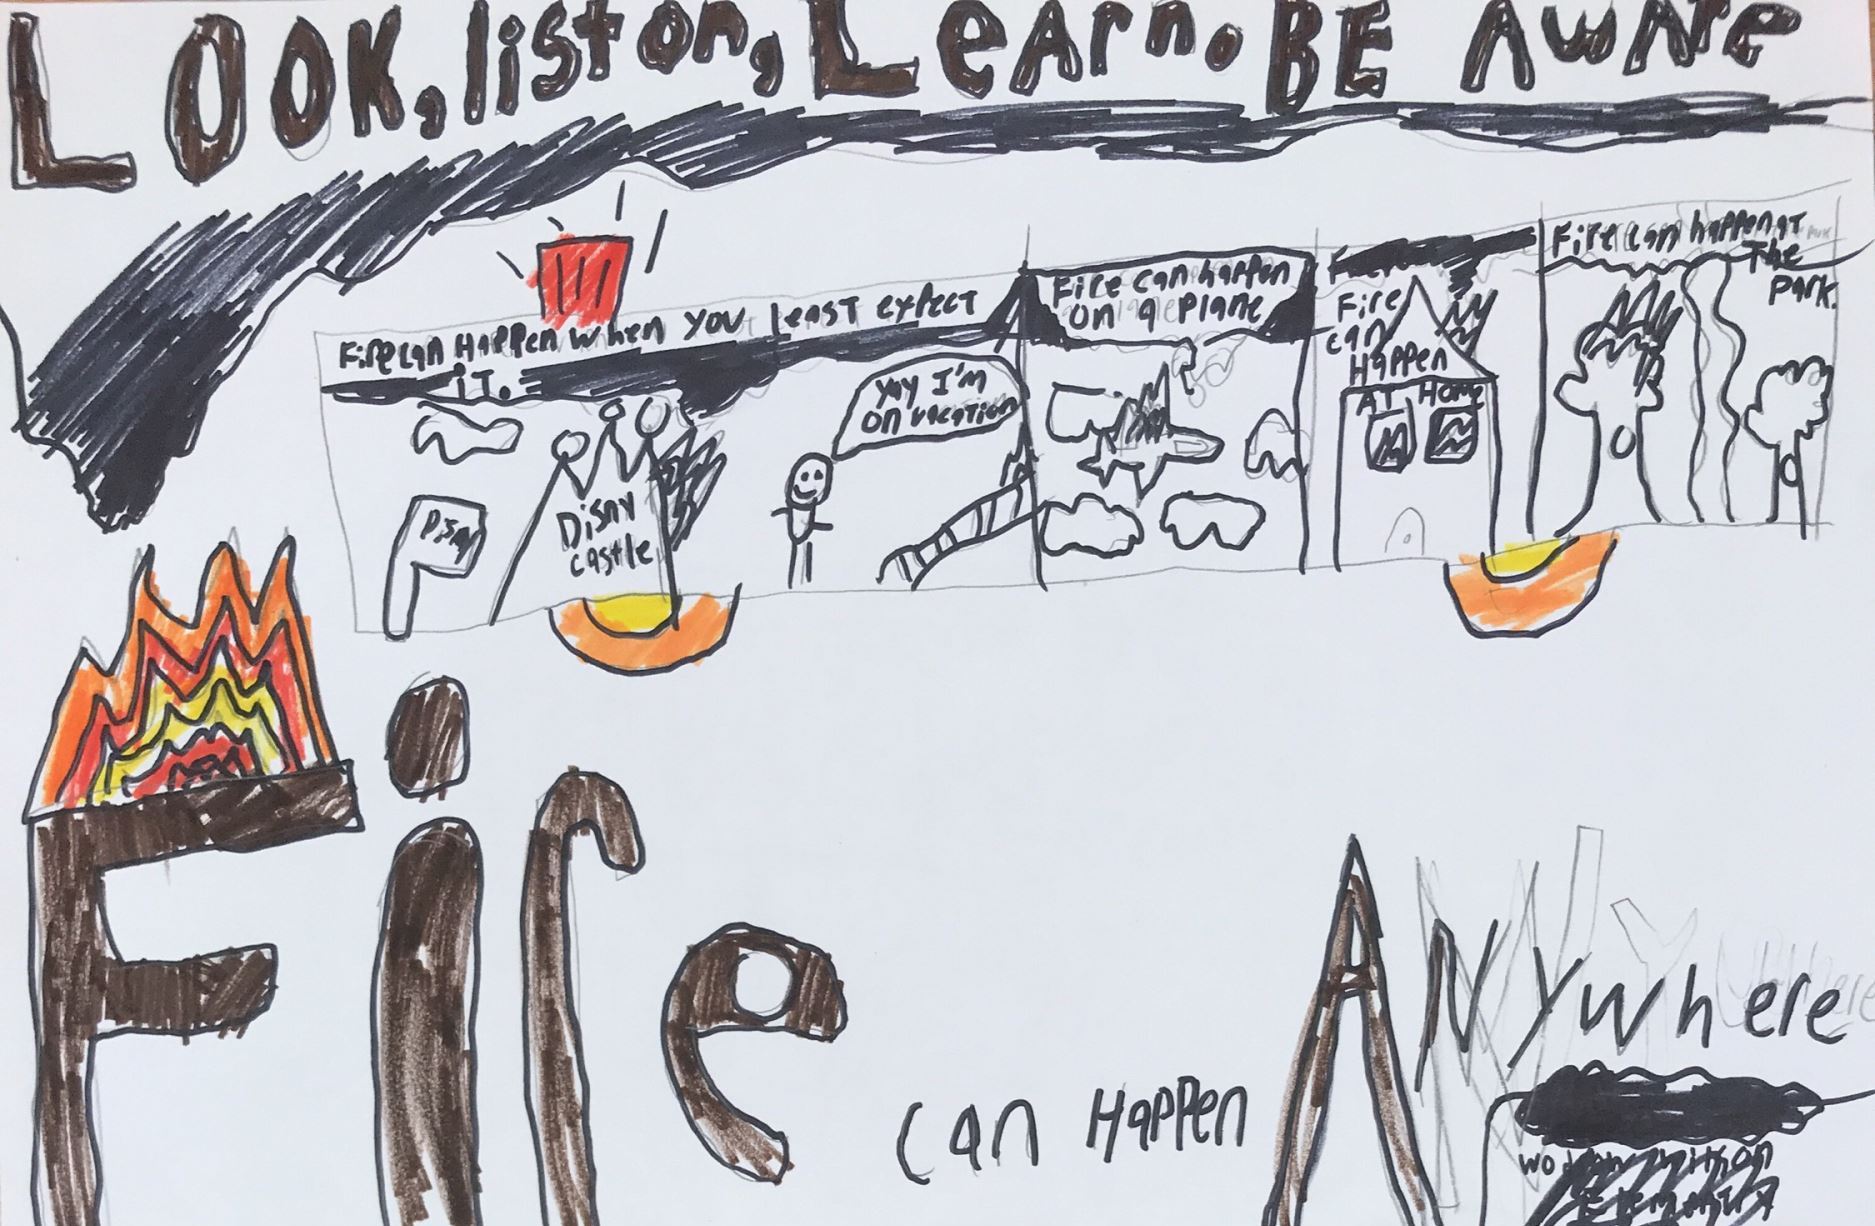 LOOK, liston, LeArn. BE AwAre
Fire can Happen when you least expect
iT.
Yay I'm
on vacation
Disny
Disny
castle
Fire can happen
on a plane
Fire
can
Happen
AT HOME
Fire can happen at
The
Park.
Fire can Happen ANYwhere